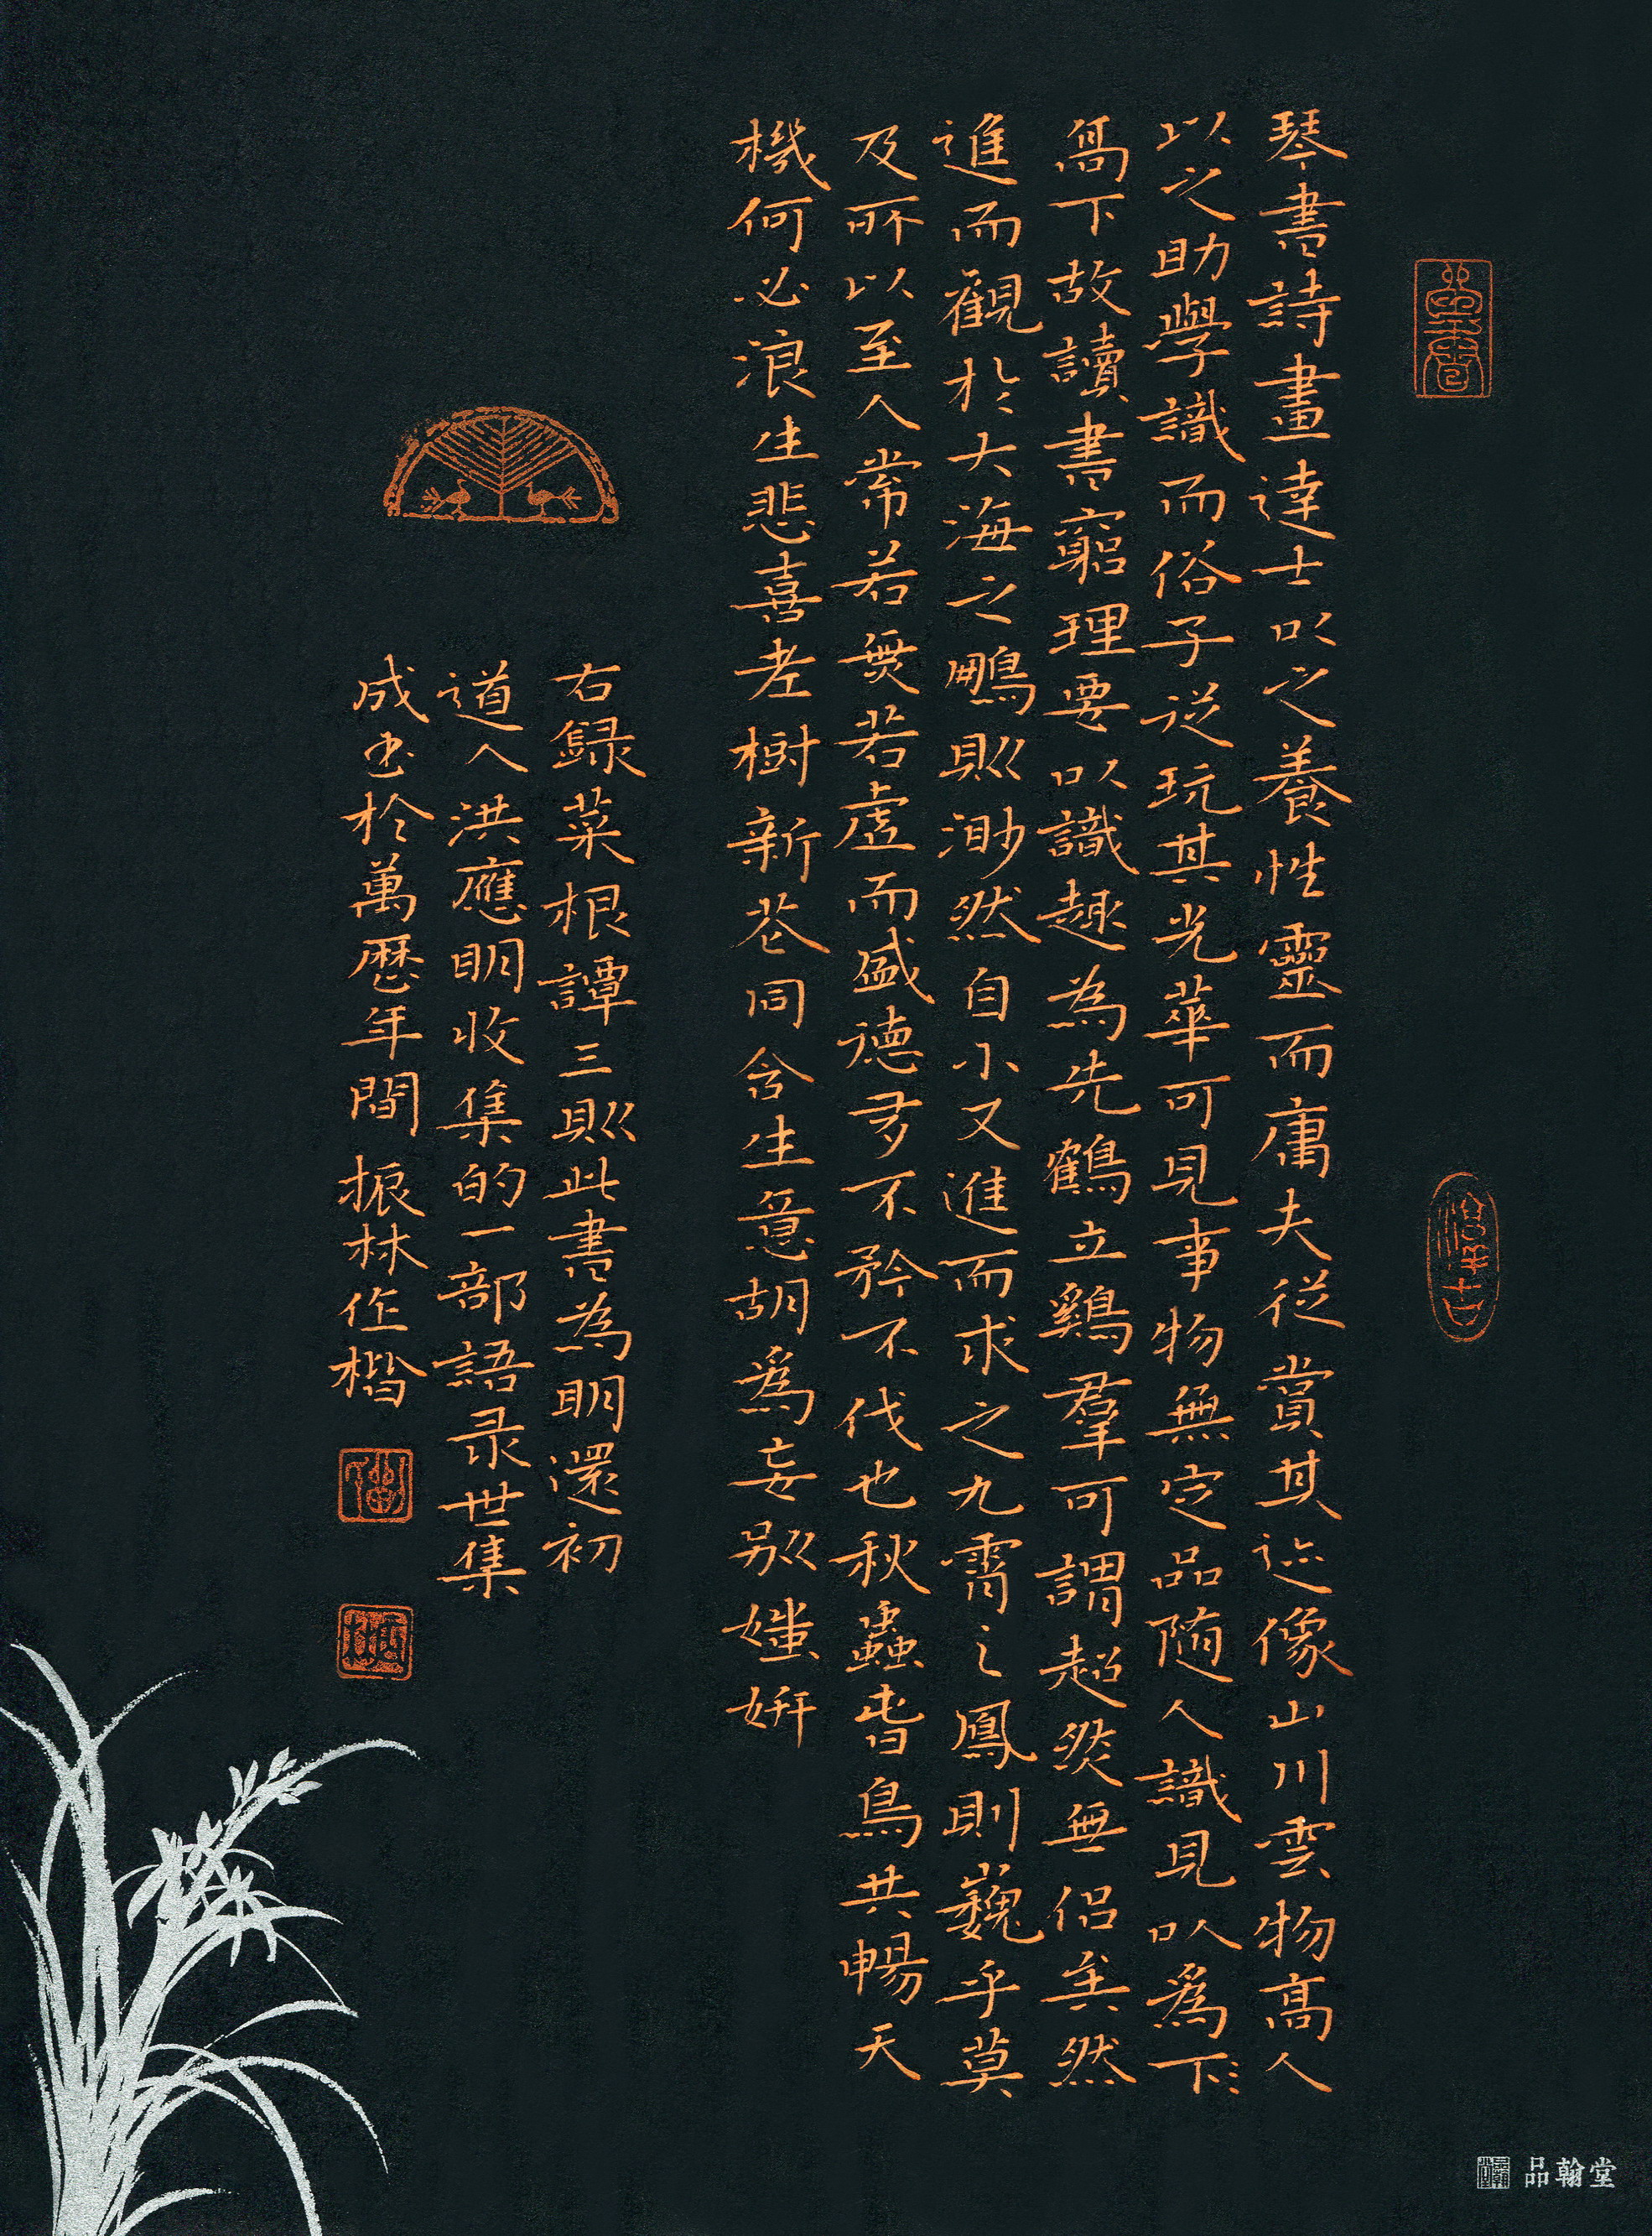 琴書詩畫達士以之養性靈而庸夫從賞其迹像山川雲物高人
以之助學識而俗子從玩其光華可見事物無定品随人識見以爲下
高下故讀書窮理要以識趣為先鶴立鷄羣可謂超然無侣矣然
進而觀於大海之鵬則渺然自小又進而求之九霄之鳳則巍乎莫
及所以至人常若無若虚而盛德多不矜不伐也秋蟲春鳥共暢天
機何必浪生悲喜老樹新花同含生意胡爲妄别媸妍
右録菜根譚三則此書為明還初
道人洪應明收集的一部語录世集
成书於萬歷年間 振林作楷
品翰堂